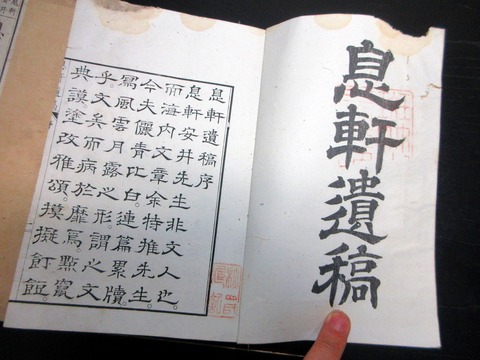 息軒遺稿
息軒遺稿序
息軒安井先生非文人也。
而海内文章余特推先生。
今夫儷青比白。連篇累牘
寫風雲月露之形。謂之文
乎。文矣而病於靡。焉點竄
典謨塗改雅頌。摸擬飣餖。